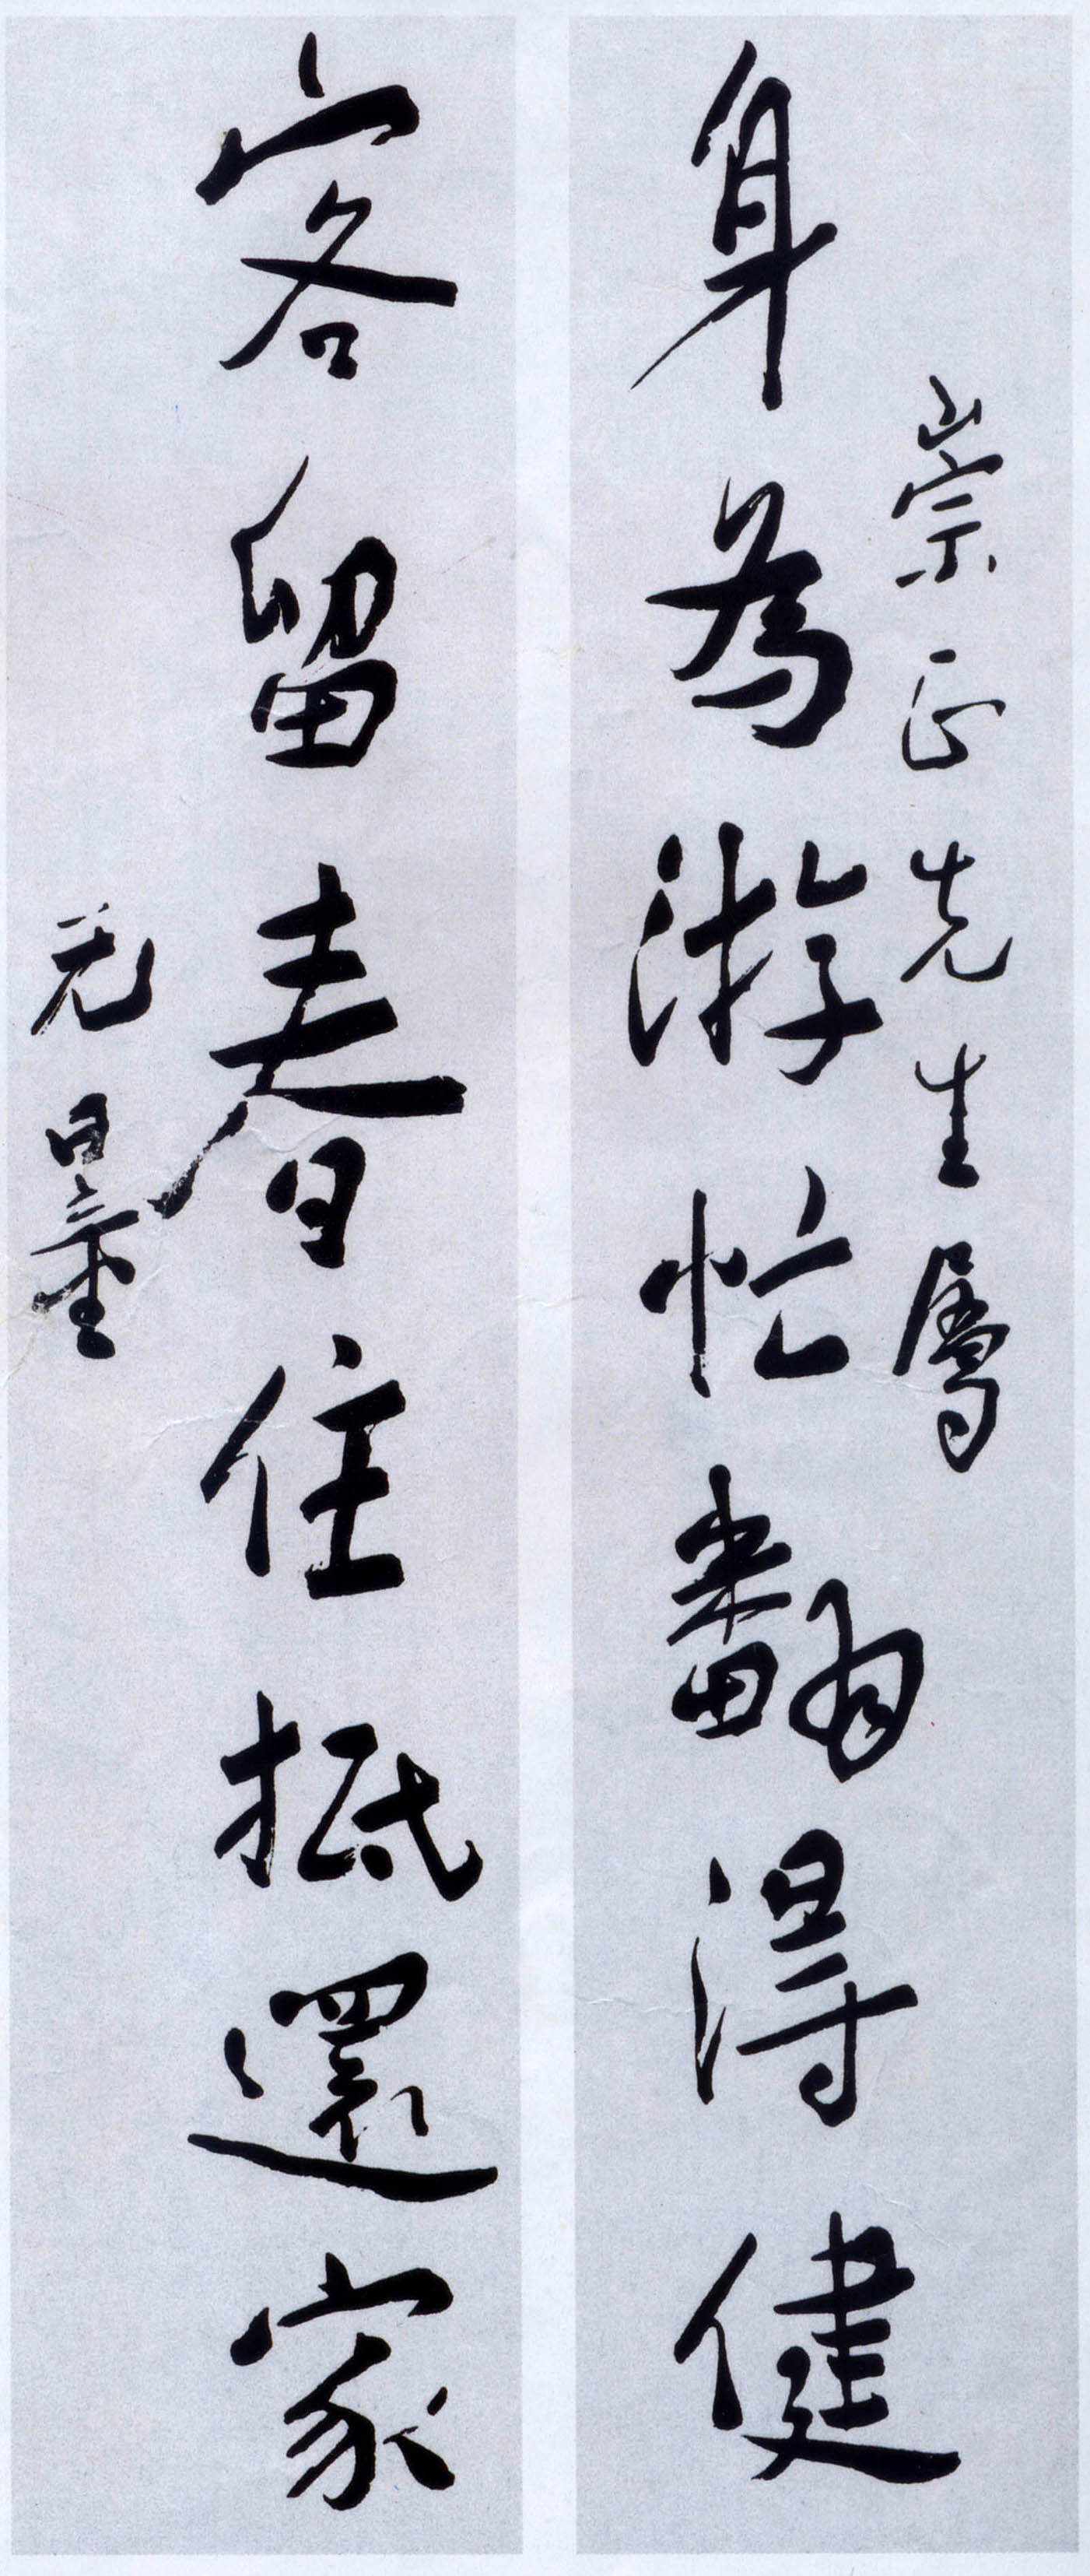 崇正先生屬
身為游忙翻得健
客留春住抵還家
无量